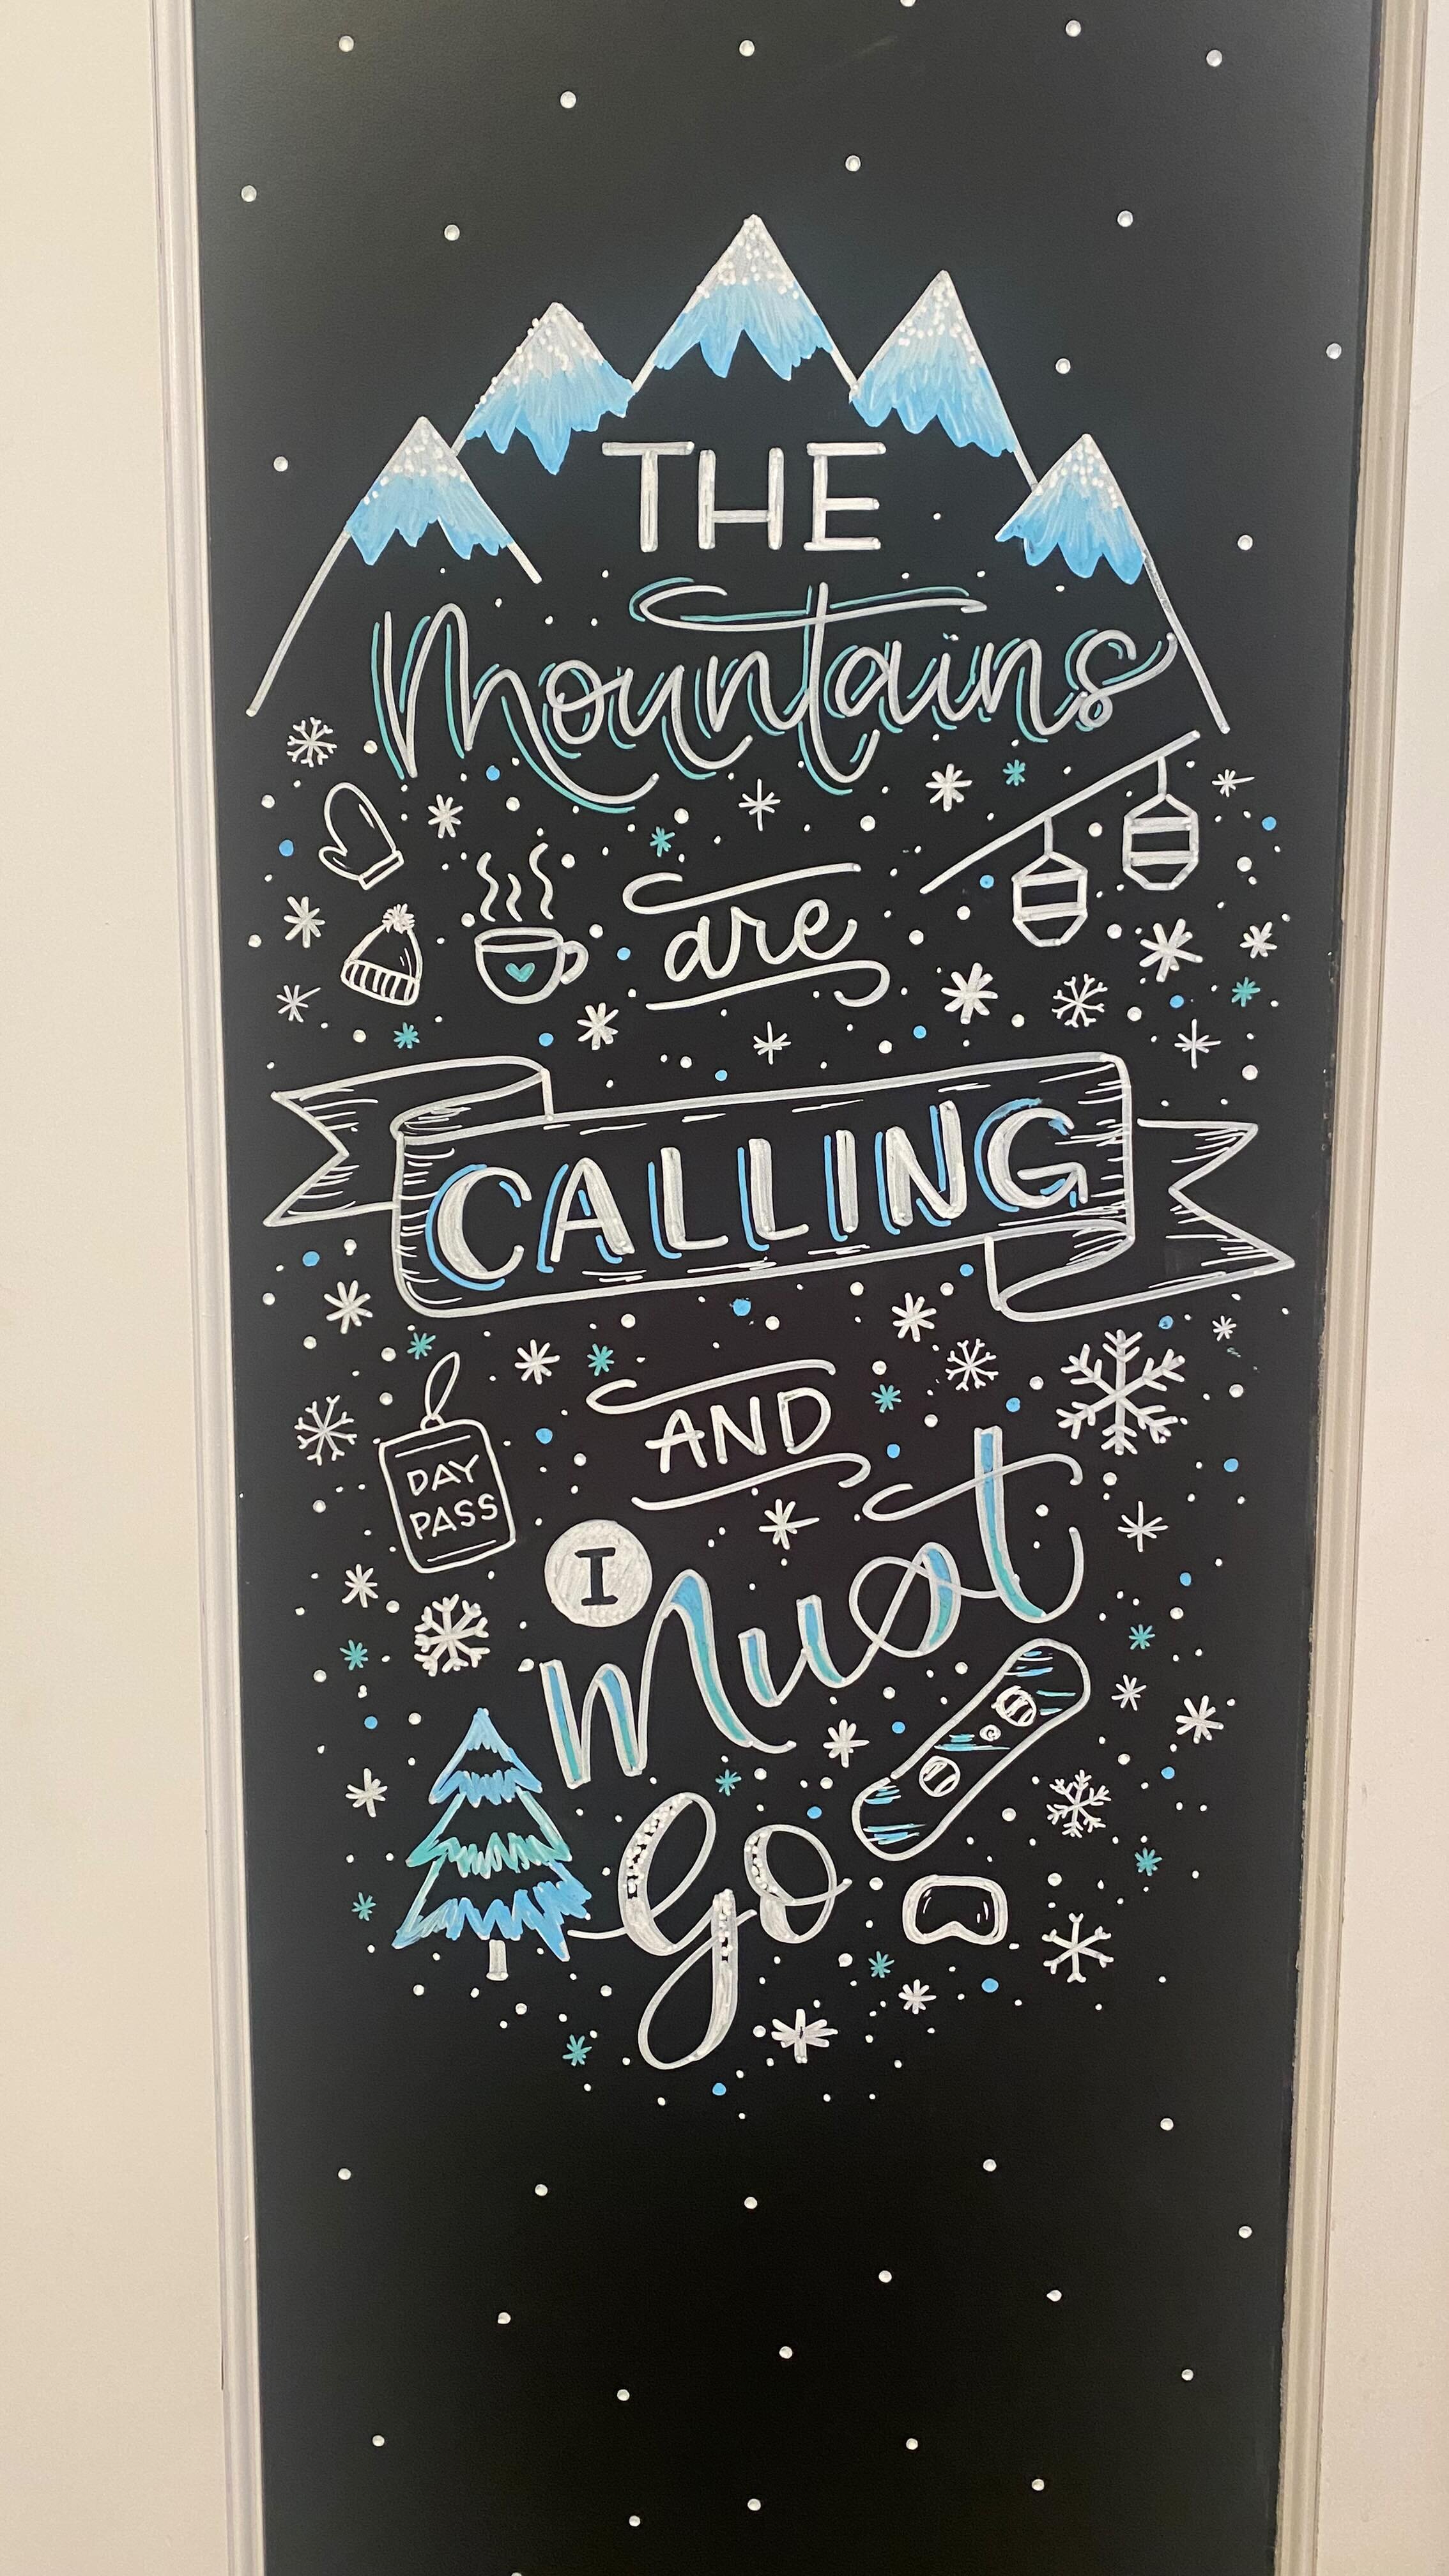 THE
Mountains
are
CALLING
AND
DAY
PASS
I
Must
Go